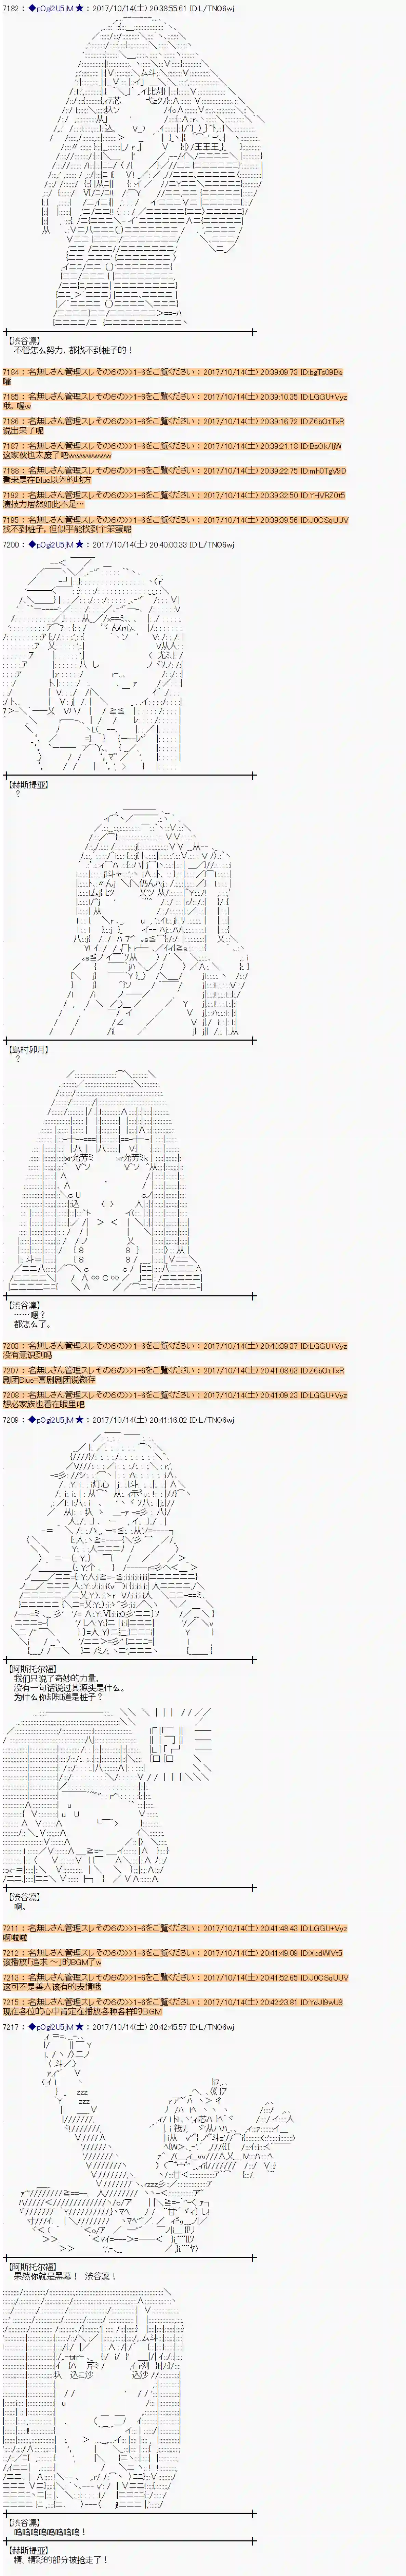 7182 ：◆pOgi2U5jM ★：2017/10/14(土) 20:38:55.61 ID:L/TNQ6wj
【渋谷凛】
不管怎么努力，都找不到桩子的！
7184 ：名無しさん管理スレその6の>>1-6をご覧ください：2017/10/14(土) 20:39:09.73 ID:bgTs09Be
嚯
7185 ：名無しさん管理スレその6の>>1-6をご覧ください：2017/10/14(土) 20:39:10.35 ID:LGGU+Vyz
哦，喔w
7186 ：名無しさん管理スレその6の>>1-6をご覧ください：2017/10/14(土) 20:39:16.72 ID:Z6bOtTxR
说出来了呢
7187 ：名無しさん管理スレその6の>>1-6をご覧ください：2017/10/14(土) 20:39:21.18 ID:BsOk/IjW
这家伙也太废了吧wwwwwww
7188 ：名無しさん管理スレその6の>>1-6をご覧ください：2017/10/14(土) 20:39:22.75 ID:mh0TgV9D
看来是在Blue以外的地方
7192 ：名無しさん管理スレその6の>>1-6をご覧ください：2017/10/14(土) 20:39:32.50 ID:YHVRZOt5
演技力居然如此不足…
7195 ：名無しさん管理スレその6の>>1-6をご覧ください：2017/10/14(土) 20:39:39.56 ID:J0CSqUUV
找不到桩子，但似乎能找到个笨蛋呢
7200 ：◆pOgi2U5jM ★：2017/10/14(土) 20:40:00.33 ID:L/TNQ6wj
【赫斯提亚】
？
【島村卯月】
？
【渋谷凛】
……嗯？
都怎么了。
7203 ：名無しさん管理スレその6の>>1-6をご覧ください：2017/10/14(土) 20:40:39.37 ID:LGGU+Vyz
没有意识到吗
7207 ：名無しさん管理スレその6の>>1-6をご覧ください：2017/10/14(土) 20:41:08.63 ID:Z6bOtTxR
剧团Blue=喜剧剧团说微存
7208 ：名無しさん管理スレその6の>>1-6をご覧ください：2017/10/14(土) 20:41:09.23 ID:LGGU+Vyz
想必家族也看在眼里吧
7209 ：◆pOgi2U5jM ★：2017/10/14(土) 20:41:16.02 ID:L/TNQ6wj
【阿斯托尔福】
我们只说了奇妙的力量，
没有一句话说过其源头是什么。
为什么你却知道是桩子？
【渋谷凛】
啊。
7211 ：名無しさん管理スレその6の>>1-6をご覧ください：2017/10/14(土) 20:41:48.43 ID:LGGU+Vyz
啊啦啦
7212 ：名無しさん管理スレその6の>>1-6をご覧ください：2017/10/14(土) 20:41:49.09 ID:XodWlVt5
该播放「追求 ～」的BGM了w
7213 ：名無しさん管理スレその6の>>1-6をご覧ください：2017/10/14(土) 20:41:52.65 ID:J0CSqUUV
这可不是善人该有的表情哦
7215 ：名無しさん管理スレその6の>>1-6をご覧ください：2017/10/14(土) 20:42:23.81 ID:YdJI9wU8
现在各位的心中肯定在播放各种各样的BGM
7217 ：◆pOgi2U5jM ★：2017/10/14(土) 20:42:45.57 ID:L/TNQ6wj
【阿斯托尔福】
果然你就是黑幕！ 渋谷凛！
【渋谷凛】
呜呜呜呜呜呜呜呜！
【赫斯提亚】
精，精彩的部分被抢走了！